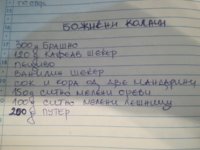 БОЖИЌНИ КОЛАЧИ
300g БРАШНО
120g КАФЕАВ ШЕЌЕР
ПЕЦИВО
ВАНИЛИН ШЕЌЕР
СОК И КОРА ОД ДВЕ МАНДАРИНИ
150g СИТНО МЕЛЕНИ ОРЕВИ
100g СИТНО МЕЛЕНИ ЛЕШНИЦИ
250g ПУТЕР